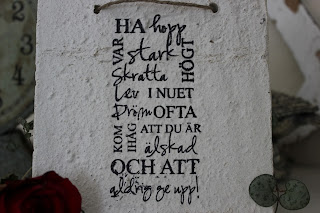 HA hopp
VAR stark
Skratta HÖGT
Lev I NUET
Dröm OFTA
KOM IHÅG ATT DU ÄR
älskad
OCH ATT
aldrig ge upp!